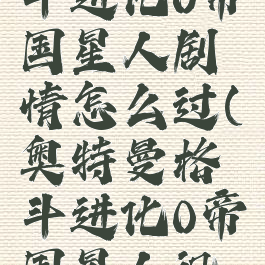 斗进化0帝
国星人剧
情怎么过(
奥特曼格
斗进化0帝
国星人剧